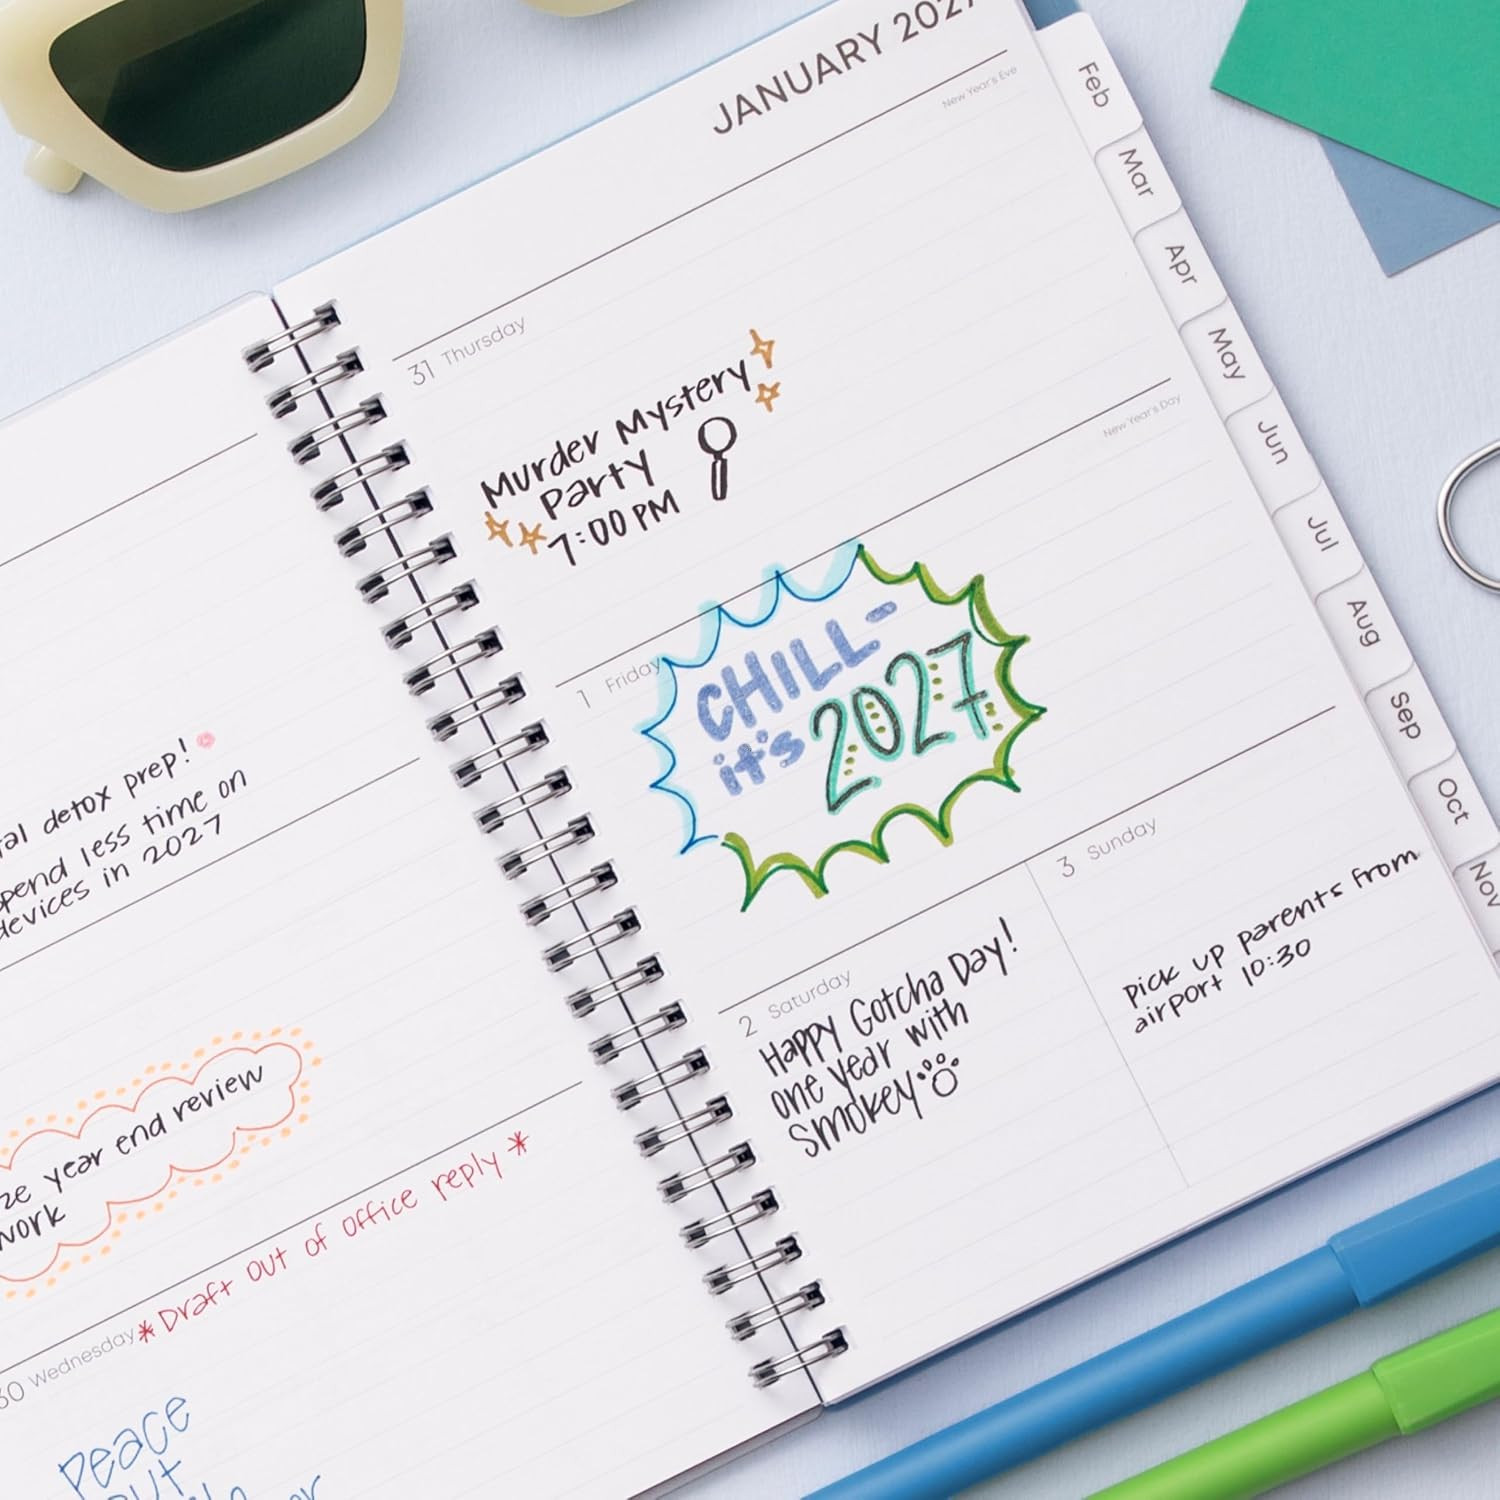 al detox prep!
spend less time on
devices in 2027
ze year end review
work
30 Wednesday
*Draft out of office reply*
Peace
out
JANUARY 2027
New Year's Eve
31 Thursday
Murder Mystery
Party
7:00 PM
New Year's Day
1 Friday
CHILL-
it's 2027
2 Saturday
Happy Gotcha Day!
one year with
Smokey
3 Sunday
pick up parents from
airport 10:30
Feb
Mar
Apr
May
Jun
Jul
Aug
Sep
Oct
Nov